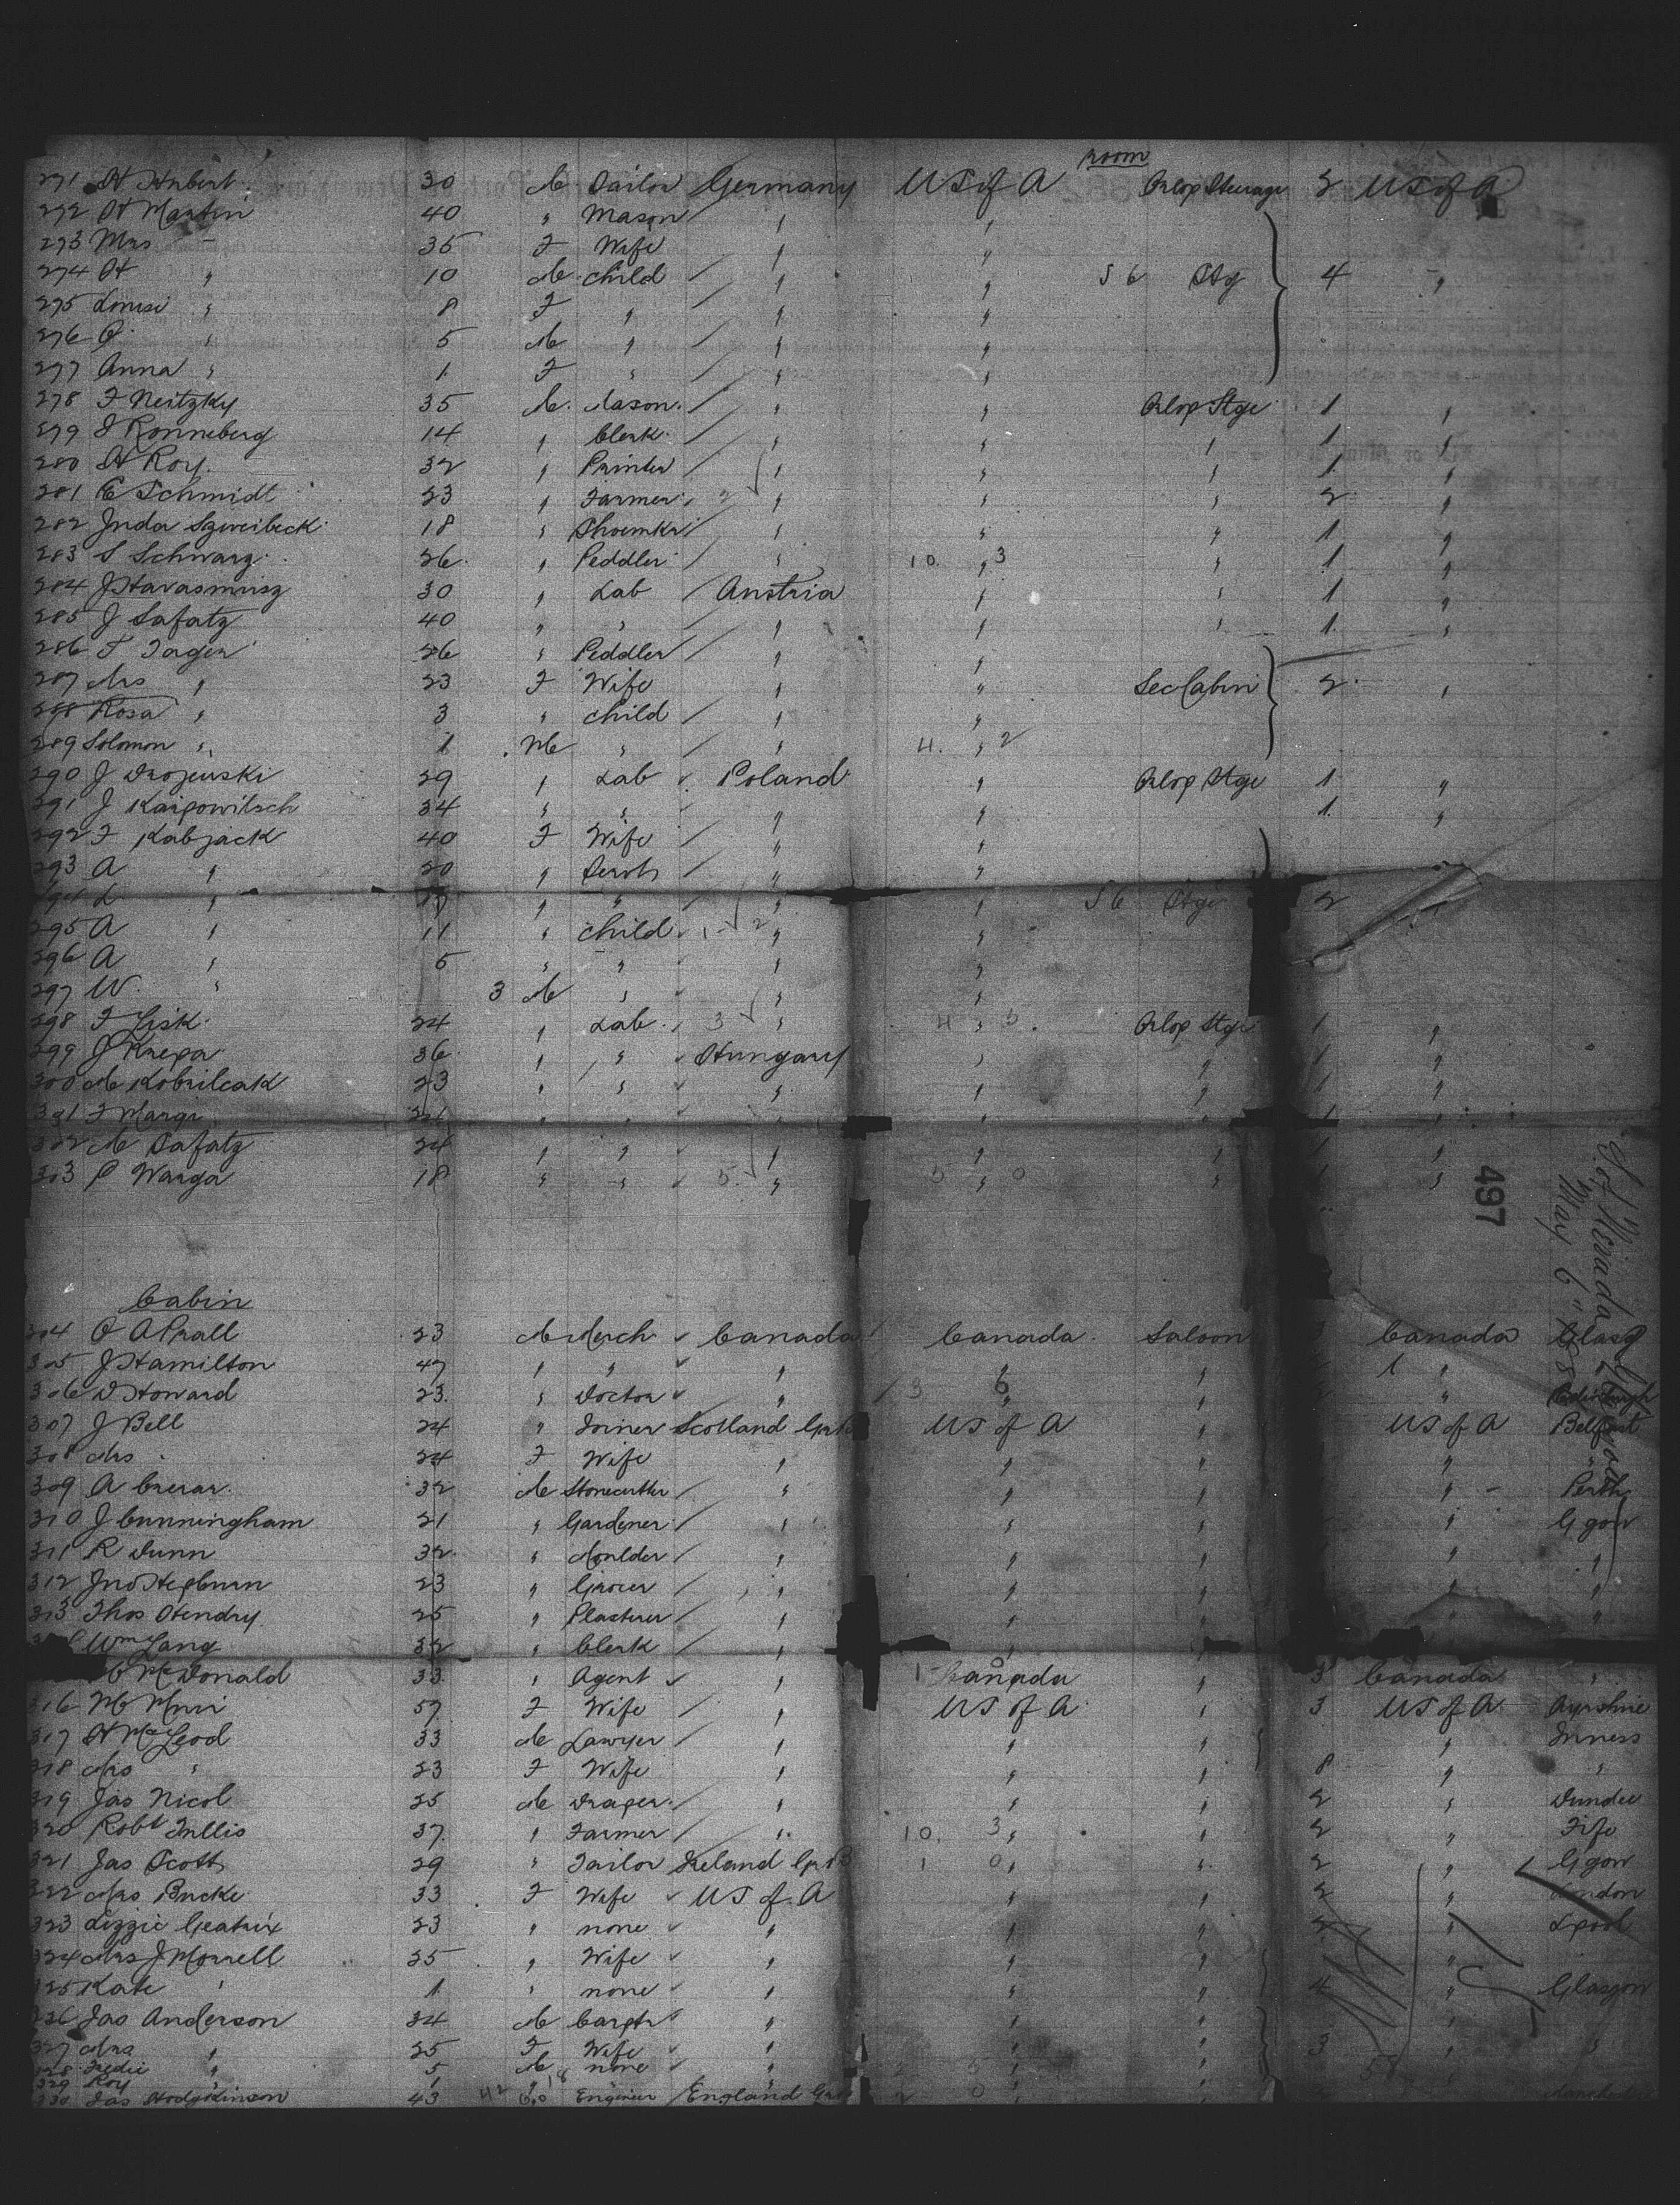 room
271 H Hubert 30 M Sailor Germany US of A Orlop Steerage 2 US of A
272 H Martin 40 " Mason " "
273 Mrs " 35 F Wife " "
274 H " 10 M child " " S 6 Stg 4 "
275 Louise " 8 F " " "
276 O " 5 M " " "
277 Anna " 1 F " " "
278 F Neitzky 35 M. Mason " " Orlop Stge 1 "
279 J Ronneberg 14 " Clerk " " " 1 "
280 H Roy 32 " Printer " " " 1 "
281 E Schmidt 23 " Farmer 2 " " " 2 "
282 Juda Szweibeck 18 " Shoemkr " " " 1 "
283 S Schwarz 26 " Peddler " 10. " 3 " 1 "
284 30 " Lab Austria " " 1 "
285 J Safatz 40 " " " " " 1 "
286 F Jager 26 " Peddler " "
287 Mrs " 23 F Wife " " Sec Cabin 2 "
288 Rosa " 3 " child " "
289 Solomon " 1 M " " 4. " 2
290 J 29 " Lab Poland " Orlop Stge 1 "
291 J Karpowitsch 34 " " " " 1 "
292 F Kabjack 40 F Wife " "
293 A " 20 " Servt " "
294 L " " " " " S 6 Stge 2 "
295 A " 11 " child 2 " "
296 A " 5 " " " "
297 W " 3 M " " "
298 F Lisk 24 " Lab 3 " 4 " 3. Orlop Stge 1 "
299 J Krepa 36 " " Hungary " " 1 "
300 M Kobrilcak 23 " " " " " 1 "
301 F Margi " " " " " 1 "
302 M Safatz 24 " " " " " 1 "
303 P Warga 18 " " 5 " 5 " 0 " 1 "
497
May 6"
Cabin
304 O A Prall 23 M Merch Canada Canada Saloon 3 Canada Glasg
305 J Hamilton 47 " " " " " 1 "
306 D Howard 23 " Doctor " 3 6 " " " Edinburgh
307 J Bell 24 " Joiner Scotland US of A " US of A Belfast
308 Mrs 24 F Wife " " " " "
309 A Crerar 32 M Stonecutter " " " " Perth
310 J Cunningham 21 " Gardener " " " " Ggow
311 R Dunn 32 " Moulder " " " " "
312 Jno Hepburn 23 " Grocer " " " " "
313 Thos Hendry 25 " Plasterer " " " " "
Wm Lang 32 " Clerk " " "
McDonald 33 " Agent " 1 Canada " 3 Canada "
316 M Muir 57 F Wife " US of A " 3 US of A Ayrshire
317 H McLeod 33 M Lawyer " " " " Inness
318 Mrs " 23 F Wife " " " 8 " "
319 Jas Nicol 25 M Draper " " " 2 " Dundee
320 Robt Tullis 37 " Farmer " 10. 3 " " 2 " Fife
321 Jas Scott 29 " Tailor Ireland Gt B 1 0 " " 2 " Ggow
322 Mrs Bucke 33 F Wife US of A " " 2 " London
323 Lizzie Geatrix 23 " none " " " 2 " Lpool
324 Mrs J Morrell 25 " Wife " " " "
325 Kate " 1 " none " " " 4 " Glasgow
326 Jas Anderson 34 M Carptr " " " "
327 Mrs " 25 F Wife " " " 3 " "
328 Fredie " 5 M none " " " 58
329 Roy " " " " "
330 Jas Hodgkinson 43 42 18 Engineer England 2 0 "